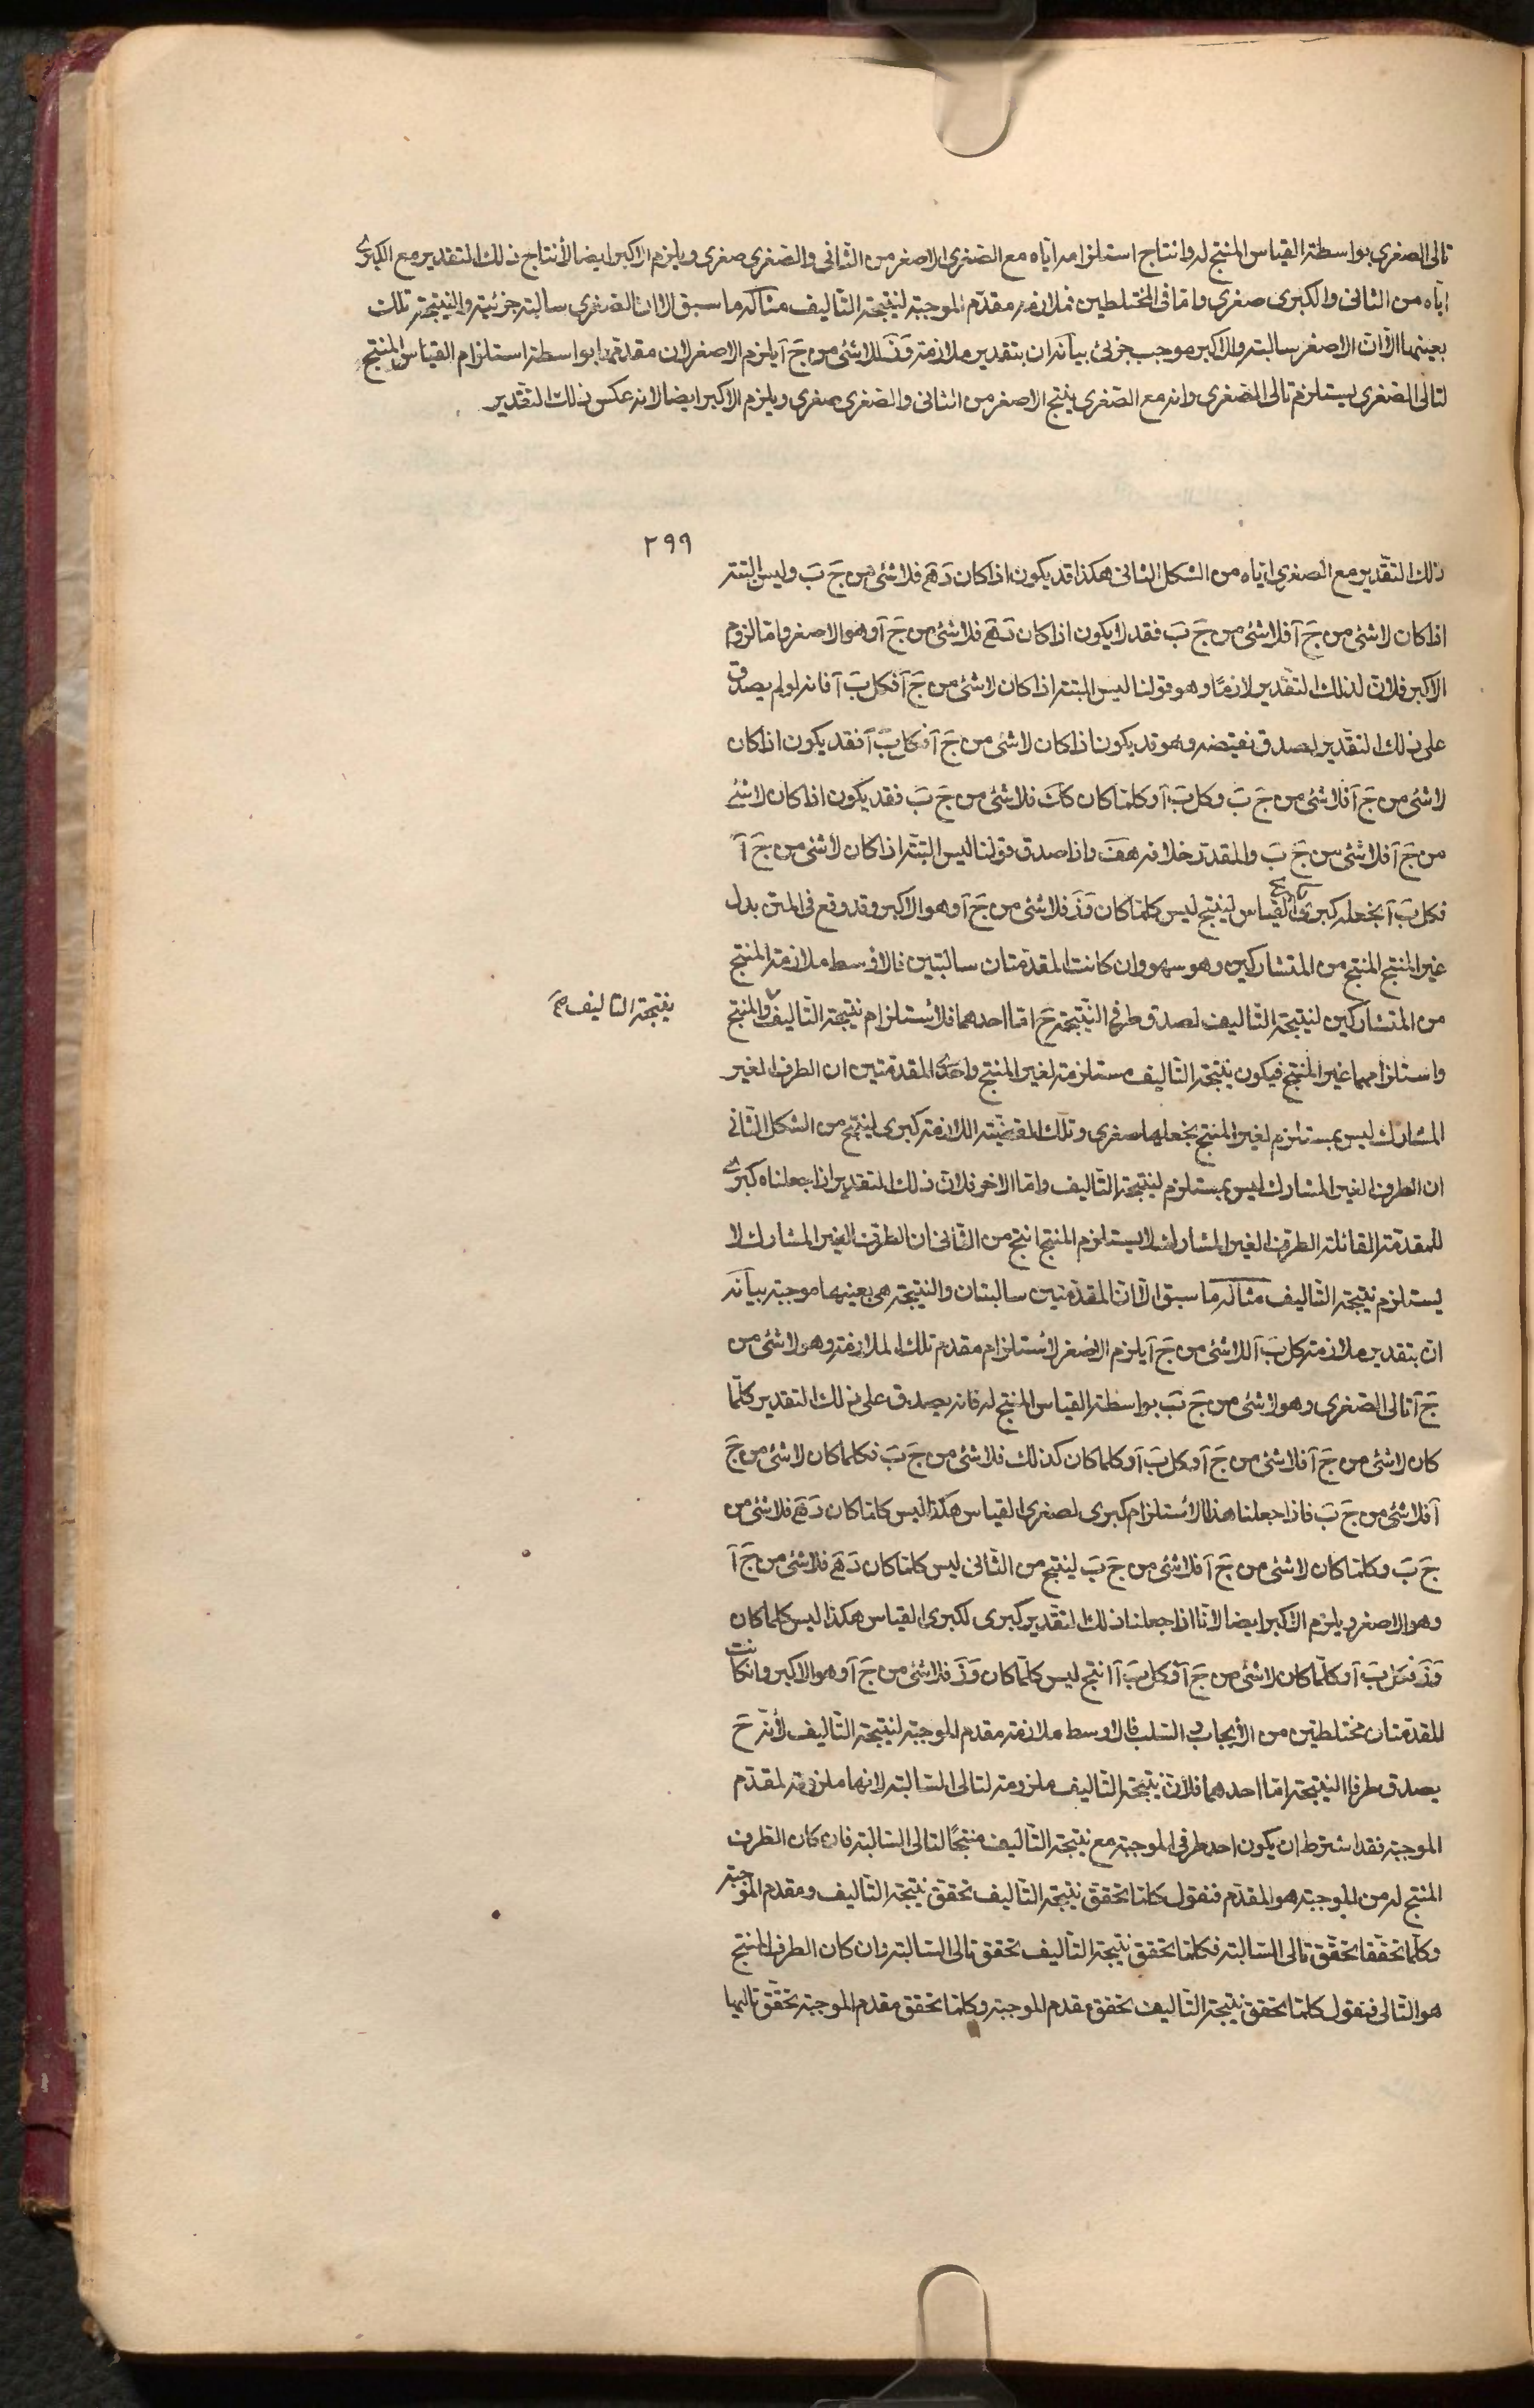 تالى الصغرى بواسطة القياس المنتج له وانتاج استلزامه اياه مع الصغرى الاصغر من الثانى والصغرى صغرى ويلزم الاكبر ايضا لانتاج ذلك التقدير مع الكبرى
اياه من الثانى والكبرى صغرى واما فى المختلطين فملازمة مقدم الموجبة لنتيجة التاليف مثاله ما سبق الا ان الصغرى سالبة جزئية والنتيجة تلك
بعينها الا ان الاصغر سالبة والاكبر موجب جزئى بيانه ان بتقدير ملازمة وَزَ للاشئ من جَ آ يلزم الاصغر لان مقدمها بواسطة استلزام القياس المنتج
لتالى الصغرى يستلزم تالى الصغرى وانه مع الصغرى ينتج الاصغر من الثانى والصغرى صغرى ويلزم الاكبر ايضا لانه عكس ذلك التقدير
٢٩٩
ذلك التقدير مع الصغرى اياه من الشكل الثانى هكذا قد يكون اذا كان دَ هَ فلا شئ من جَ بَ وليس البتة
اذا كان لا شئ من جَ آ فلا شئ من جَ بَ فقد لا يكون اذا كان دَ هَ فلا شئ من جَ آ وهو الاصغر واما لزوم
الاكبر فلان لذلك التقدير لازما وهو قولنا ليس البتة اذا كان لا شئ من جَ آ فكل بَ آ فانه لو لم يصدق
على ذلك التقدير لصدق نقيضه وهو قد يكون اذا كان لا شئ من جَ آ فكل بَ آ فقد يكون اذا كان
لا شئ من جَ آ فلا شئ من جَ بَ وكل بَ آ وكلما كان كك فلا شئ من جَ بَ فقد يكون اذا كان لا شئ
من جَ آ فلا شئ من جَ بَ والمقدر خلافه هف واذا صدق قولنا ليس البتة اذا كان لا شئ من جَ آ
فكل بَ آ نجعله كبرى لكبرى القياس لينتج ليس كلما كان وَزَ فلا شئ من جَ آ وهو الاكبر وقد وقع فى المتن بدل
غير المنتج المنتج من المتشاركين وهو سهو وان كانت المقدمتان سالبتين فالاوسط ملازمة المنتج
من المتشاركين لنتيجة التاليف لصدق طرفى النتيجة ح اما احدهما فلاستلزام نتيجة التاليف والمنتج
نتيجة التاليف صح
واستلزامهما غير المنتج فيكون نتيجة التاليف مستلزمة لغير المنتج واحدى المقدمتين ان الطرف الغير
المشارك ليس بمستلزم لغير المنتج نجعلها صغرى وتلك القضية اللازمة كبرى لينتج من الشكل الثانى
ان الطرف الغير المشارك ليس بمستلزم لنتيجة التاليف واما الاخر فلان ذلك التقدير اذا جعلناه كبرى
للمقدمة القائلة الطرف الغير المشارك لا يستلزم المنتج انتج من الثانى ان الطرف الغير المشارك لا
يستلزم نتيجة التاليف مثاله ما سبق الا ان المقدمتين سالبتان والنتيجة هى بعينها موجبة بيانه
ان بتقدير ملازمة كل بَ آ للاشئ من جَ آ يلزم الاصغر لاستلزام مقدم تلك الملازمة وهو لا شئ من
جَ آ تالى الصغرى وهو لا شئ من جَ بَ بواسطة القياس المنتج له فانه يصدق على ذلك التقدير كلما
كان لا شئ من جَ آ فلا شئ من جَ آ وكل بَ آ وكلما كان كذلك فلا شئ من جَ بَ فكلما كان لا شئ من جَ
آ فلا شئ من جَ بَ فاذا جعلنا هذا الاستلزام كبرى لصغرى القياس هكذا ليس كلما كان دَ هَ فلا شئ من
جَ بَ وكلما كان لا شئ من جَ آ فلا شئ من جَ بَ لينتج من الثانى ليس كلما كان دَ هَ فلا شئ من جَ آ
وهو الاصغر ويلزم الاكبر ايضا لانا اذا جعلنا ذلك التقدير كبرى لكبرى القياس هكذا ليس كلما كان
وَزَ فكل بَ آ وكلما كان لا شئ من جَ آ فكل بَ آ انتج ليس كلما كان وَزَ فلا شئ من جَ آ وهو الاكبر وان كانت
المقدمتان مختلطتين من الايجاب والسلب فالاوسط ملازمة مقدم الموجبة لنتيجة التاليف لانه ح
يصدق طرفا النتيجة اما احدهما فلان نتيجة التاليف ملزومة لتالى السالبة لانها ملزومة لمقدم
الموجبة فقد اشترط ان يكون احد طرفى الموجبة مع نتيجة التاليف منتجا لتالى السالبة فان كان الطرف
المنتج له من الموجبة هو المقدم فنقول كلما تحقق نتيجة التاليف تحقق نتيجة التاليف ومقدم الموجبة
وكلما تحققا تحقق تالى السالبة فكلما تحقق نتيجة التاليف تحقق تالى السالبة وان كان الطرف المنتج
هو التالى فنقول كلما تحقق نتيجة التاليف تحقق مقدم الموجبة وكلما تحقق مقدم الموجبة تحقق تاليها